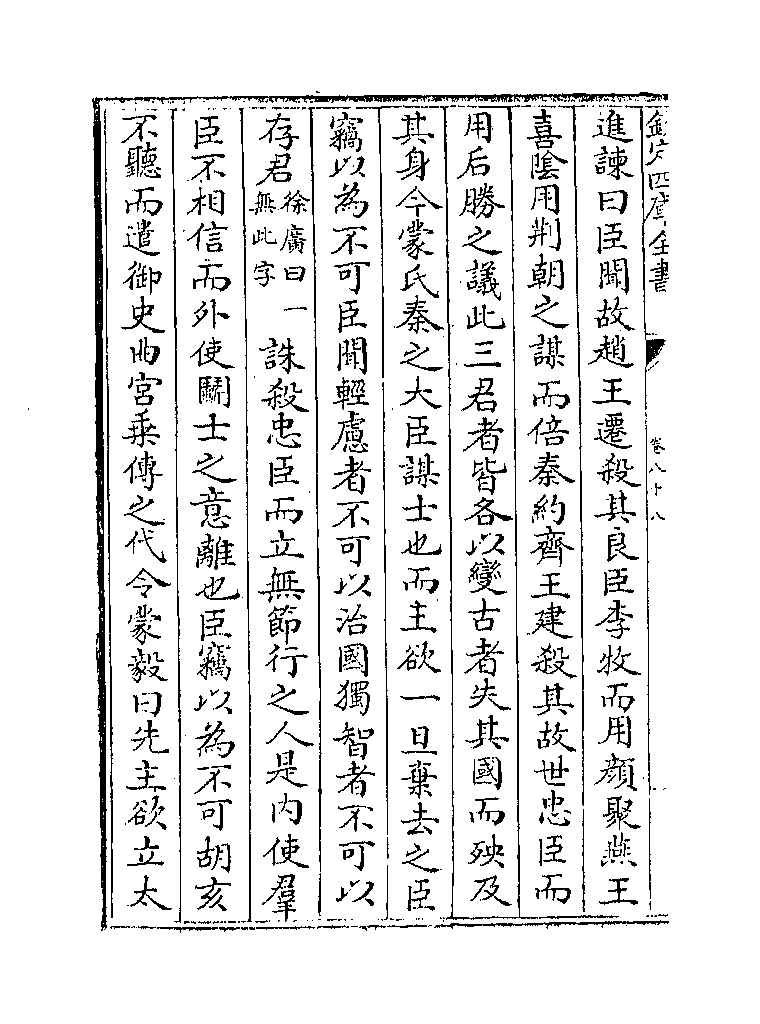 欽定四庫全書
卷八十八
進諫曰臣聞故趙王遷殺其良臣李牧而用顔聚燕王
喜陰用荆軻之謀而倍秦約齊王建殺其故世忠臣而
用后勝之議此三君者皆各以變古者失其國而殃及
其身今蒙氏秦之大臣謀士也而主欲一旦棄去之臣
竊以為不可臣聞輕慮者不可以治國獨智者不可以
存君徐廣曰一無此字誅殺忠臣而立無節行之人是内使羣
臣不相信而外使鬭士之意離也臣竊以為不可胡亥
不聽而遣御史曲宮乘傳之代令蒙毅曰先主欲立太